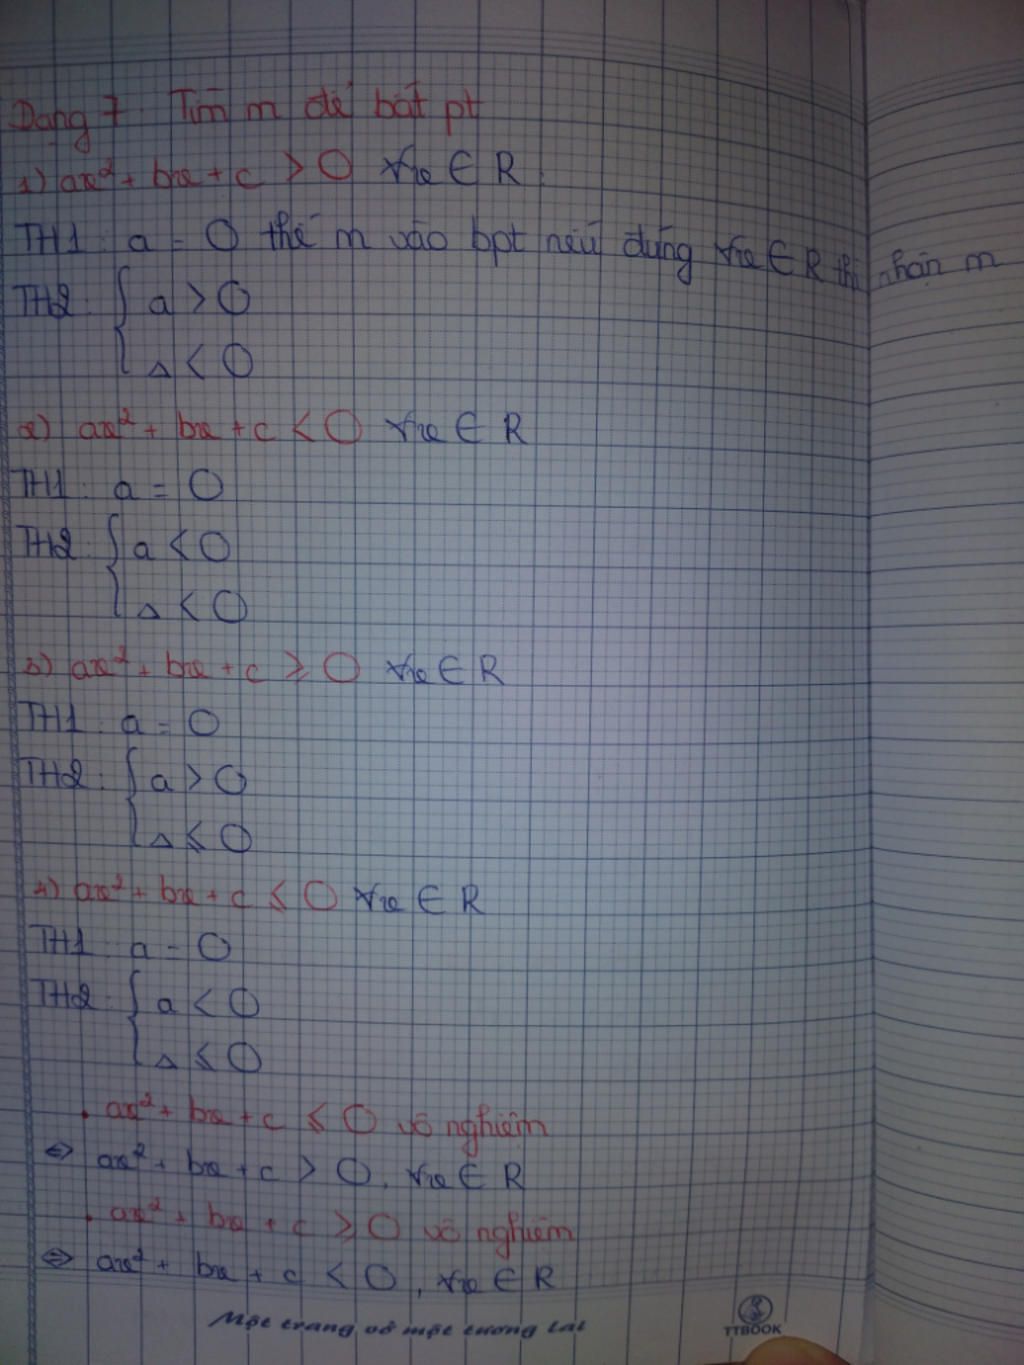 Dạng 7: Tìm m để bất pt
1) ax² + bx + c > 0 ∀x ∈ R
TH1: a = 0 thế m vào bpt nếu đúng ∀x ∈ R thì nhận m
TH2: { a > 0
Δ < 0
2) ax² + bx + c < 0 ∀x ∈ R
TH1: a = 0
TH2: { a < 0
Δ < 0
3) ax² + bx + c ≥ 0 ∀x ∈ R
TH1: a = 0
TH2: { a > 0
Δ ≤ 0
4) ax² + bx + c ≤ 0 ∀x ∈ R
TH1: a = 0
TH2: { a < 0
Δ ≤ 0
• ax² + bx + c ≤ 0 vô nghiệm
⇔ ax² + bx + c > 0, ∀x ∈ R
• ax² + bx + c ≥ 0 vô nghiệm
⇔ ax² + bx + c < 0, ∀x ∈ R
Một trang vở một tương lai
TTBOOK